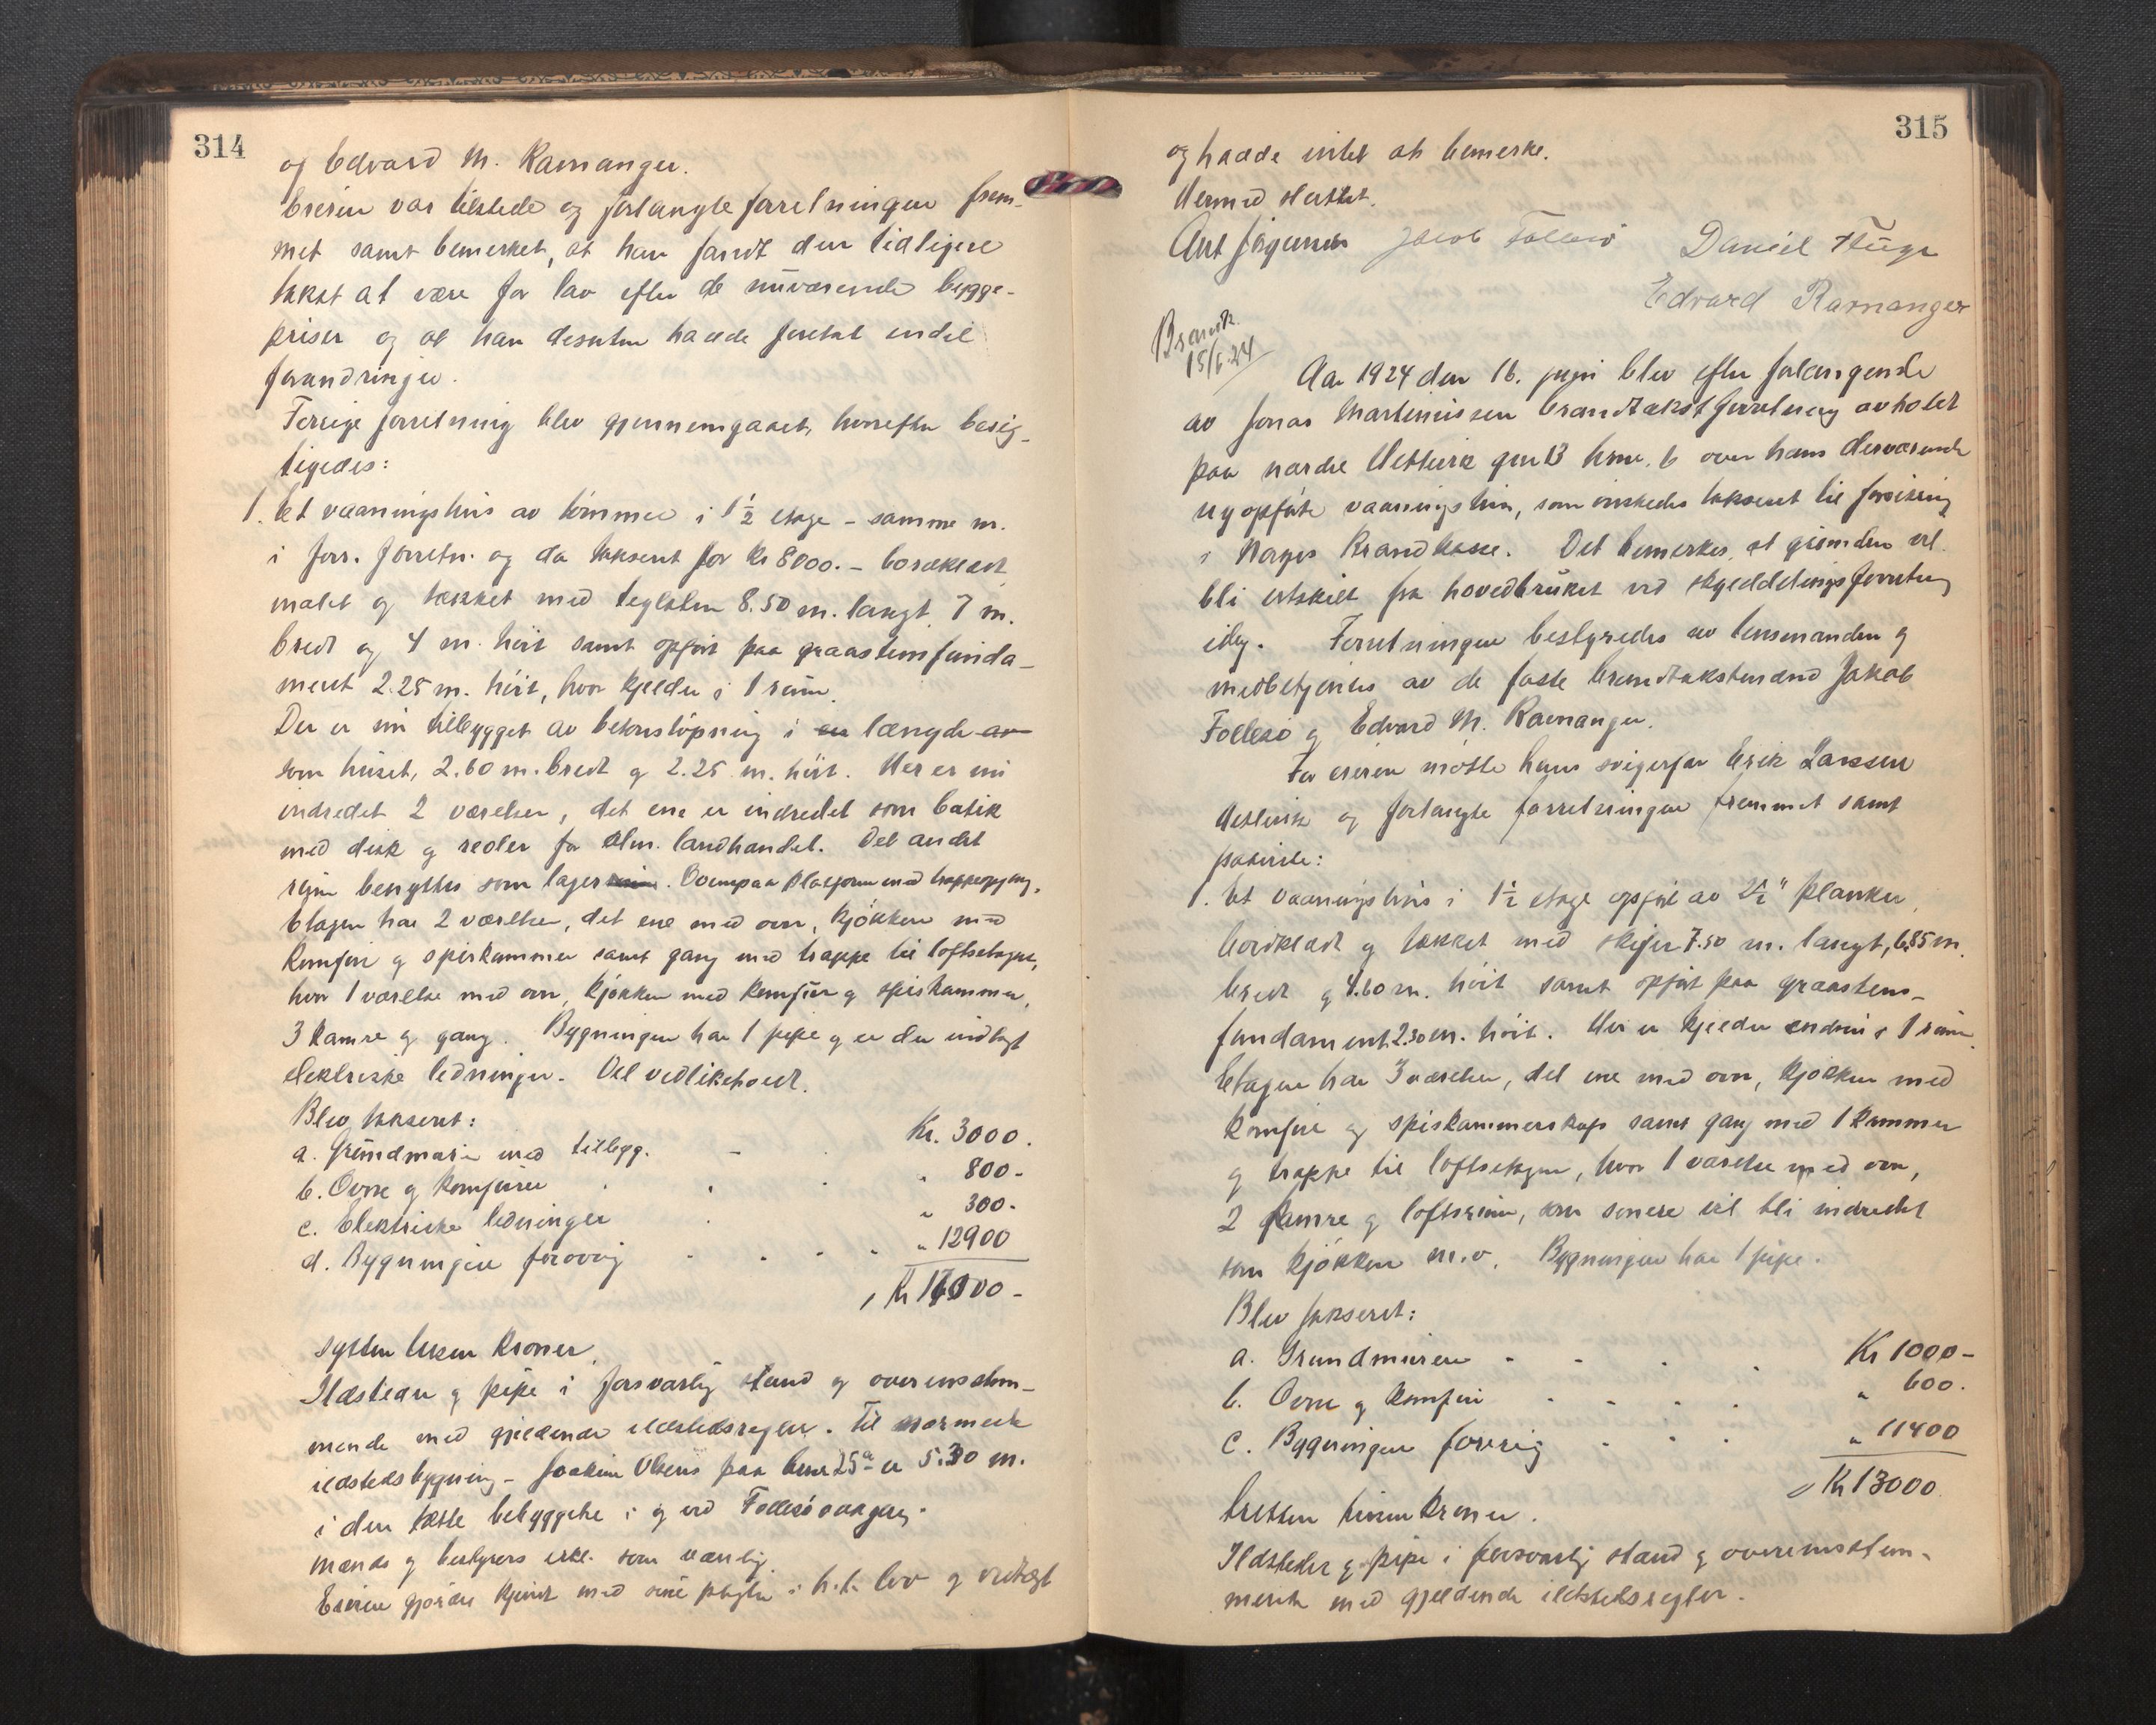 314
og Edvard M. Ramanger.
Eieren var tilstede og forlangte forretningen frem-
met samt bemerket, at han fandt den tidligere
takst at være for lav efter de nuværende bygge-
priser og at han desuten hadde foretat endel
forandringer.
Forrige forretning blev gjennemgaaet, hvorefter besig-
tigedes:
1. Et vaaningshus av tømmer i 1½ etage - samme m.
i forr. forretn. og da taksert for kr 8000.- bordklædt
malet og tækket med teglsten 8.50 m. langt 7 m.
bredt og 4 m. høit samt opført paa graastensfunda-
ment 2.25 m. høit, hvor kjelder i 1 rum.
Der er nu tilbygget av betonstøpning i en længde av
som huset, 2.60 m. bredt og 2.25 m. høit. Her er nu
indredet 2 værelser, det ene er indredet som butik
med disk og reoler for alm. landhandel. Det andet
rum benyttes som lager. Ovenpaa platform med trappeopgang.
Etagen har 2 værelser, det ene med ovn, kjøkken med
komfur og spiskammer samt gang med trappe til loftsetagen,
hvor 1 værelse med ovn, kjøkken med komfur og spiskammer,
3 kamre og gang. Bygningen har 1 pipe og er der indlagt
elektriske ledninger. Vel vedlikeholdt.
Blev taksert:
a. Grundmur med tillegg. Kr. 3000.
b. Ovne og komfurer " 800-
c. Elektriske ledninger " 300-
d. Bygningen forøvrig " 12900
Kr 17000-
sytten tusen kroner.
Ildsteder og pipe i forsvarlig stand og overensstem-
mende med gjeldende ildstedsregler. Til nærmeste
ildstedsbygning - Joakim Olsens paa bnr 25a - er 5.30 m.
i den tætte bebyggelse i og ved Follesøvaagen.
mænds og bestyrers erkl. som vanlig
Eieren gjordes kjendt med sine pligter i h.t. lov og vedtægt
315
og hadde intet at bemerke.
Hermed sluttet.
Ant Jørgensen Jacob Follesø Daniel Fluge
Edvard Ramanger
Brandk.
15/6.24
Aar 1924 den 16. juni blev efter forlangende
av Jonas Martinussen brandtakstforretning avholdt
paa nordre Hetlevik gnr 13 brnr. 6 over hans derværende
nyopførte vaaningshus, som ønskedes taksert til forsikring
i Norges Brandkasse. Det bemerkes, at grunden vil
bli utskilt fra hovedbruket ved skylddelingsforretning
idag. Forretningen bestyredes av lensmanden og
medbetjentes av de faste brandtakstmænd Jakob
Follesø og Edvard M. Ramanger.
For eieren møtte hans svigerfar Erik Larssen
Hetlevik og forlangte forretningen fremmet samt
paaviste:
1. Et vaaningshus i 1½ etage opført av 2½" planker,
bordklædt og tækket med skifer 7.50 m. langt, 6.85 m.
bredt og 4.60 m. høit samt opført paa graastens-
fundament 2.30 m. høit. Her er kjelder endnu i 1 rum.
Etagen har 3 værelser, det ene med ovn, kjøkken med
komfur og spiskammerskap samt gang med 1 kammer
og trappe til loftsetagen, hvor 1 værelse med ovn,
2 kamre og loftsrum, som senere vil bli indredet
som kjøkken m.v. Bygningen har 1 pipe.
Blev taksert:
a. Grundmuren Kr 1000-
b. Ovne og komfur " 600.
c. Bygningen forøvrig " 11400
Kr 13000
tretten tusen kroner.
Ildsteder og pipe i forsvarlig stand og overensstem-
mende med gjeldende ildstedsregler.